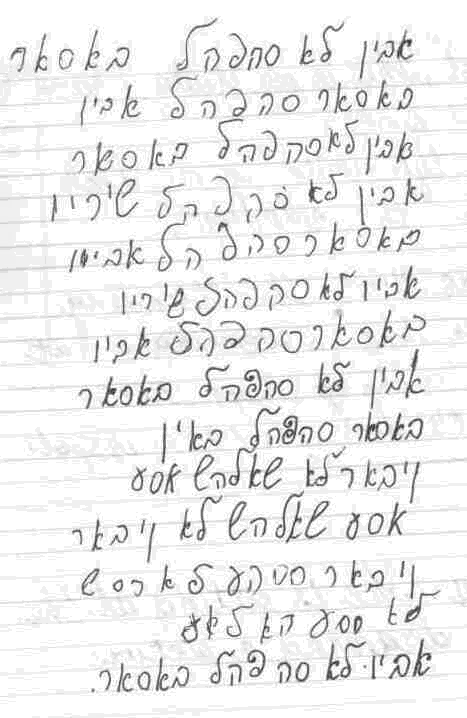 אבין לא סהפהל באסאר
באסאר סהפהל אבין
אבין לא סהפהל באסאר
אבין לא סהפהל שירין
באסאר סהפהל אבין
אבין לא סהפהל שירין
באסאר סהפהל אבין
אבין לא סהפהל באסאר
באסאר סהפהל באין
ויבאר לא שאלהש אסע
אסע שאלהש לא ויבאר
ויבאר סטהע לארסש
לא סטע הא לאע
אבין לא סהפהל באסאר.